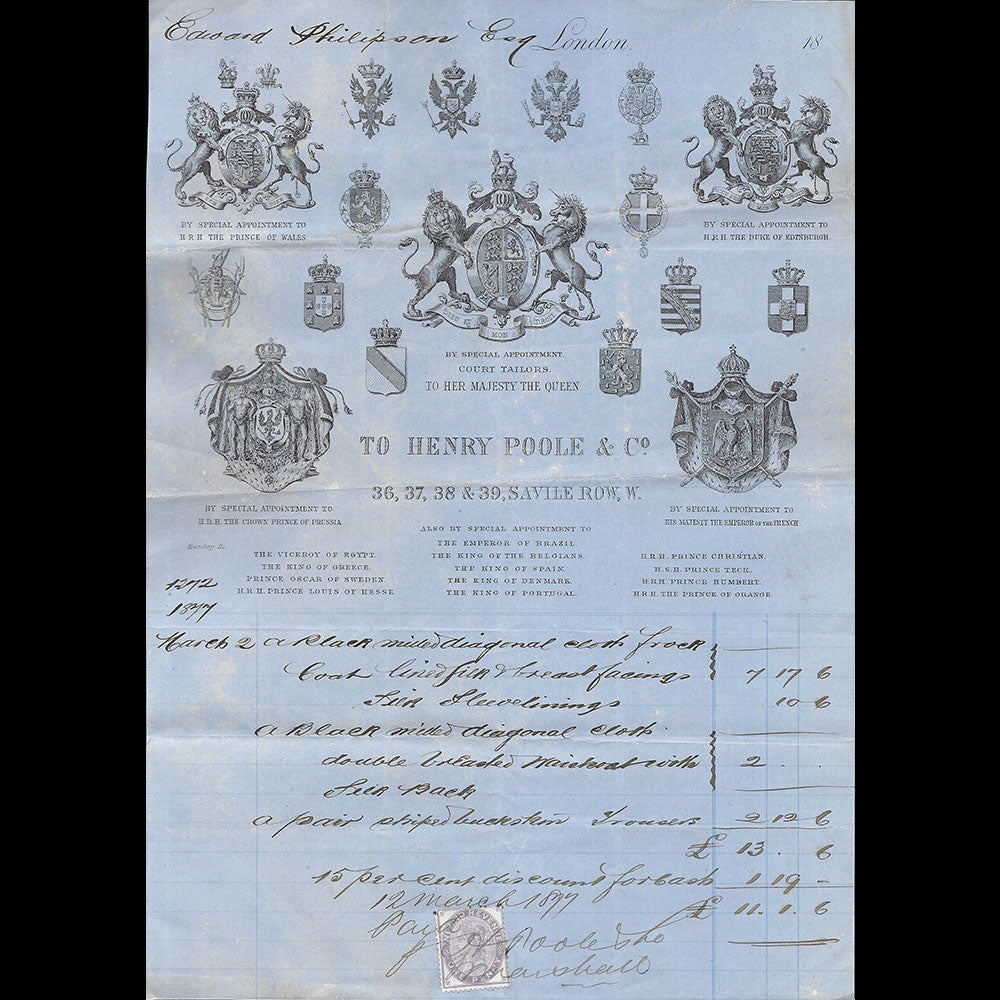 Edward Philipson Esq London. 18
BY SPECIAL APPOINTMENT TO
H.R.H THE PRINCE OF WALES
BY SPECIAL APPOINTMENT TO
H.R.H THE DUKE OF EDINBURGH.
DIEU ET MON DROIT
BY SPECIAL APPOINTMENT.
COURT TAILORS.
TO HER MAJESTY THE QUEEN
TO HENRY POOLE & Co.
36, 37, 38 & 39, SAVILE ROW, W.
BY SPECIAL APPOINTMENT TO
H.R.H THE CROWN PRINCE OF PRUSSIA
BY SPECIAL APPOINTMENT TO
HIS MAJESTY THE EMPEROR OF THE FRENCH
Barclay Sc
THE VICEROY OF EGYPT.
THE KING OF GREECE.
PRINCE OSCAR OF SWEDEN.
H.R.H PRINCE LOUIS OF HESSE.
ALSO BY SPECIAL APPOINTMENT TO
THE EMPEROR OF BRAZIL.
THE KING OF THE BELGIANS.
THE KING OF SPAIN.
THE KING OF DENMARK.
THE KING OF PORTUGAL.
H.R.H. PRINCE CHRISTIAN.
H.S.H. PRINCE TECK.
H.R.H. PRINCE HUMBERT.
H.R.H. THE PRINCE OF ORANGE.
1272
1877
March 2 a Black milled diagonal cloth frock
Coat lined silk & breast facings 7 17 6
Silk Sleevelinings 10 6
a Black milled diagonal cloth
double breasted Waistcoat with 2 . .
Silk Back
a pair striped buckskin Trousers 2 12 6
£ 13 . 6
15 per cent discount for cash 1 19 -
12 March 1877 £ 11. 1. 6
H Poole & Co
Marshall
INLAND REVENUE
ONE PENNY